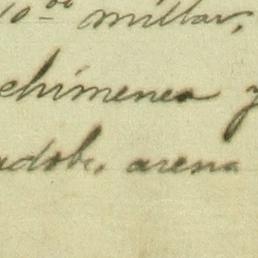 10.00 millar,
chimenea y
adobe, arena